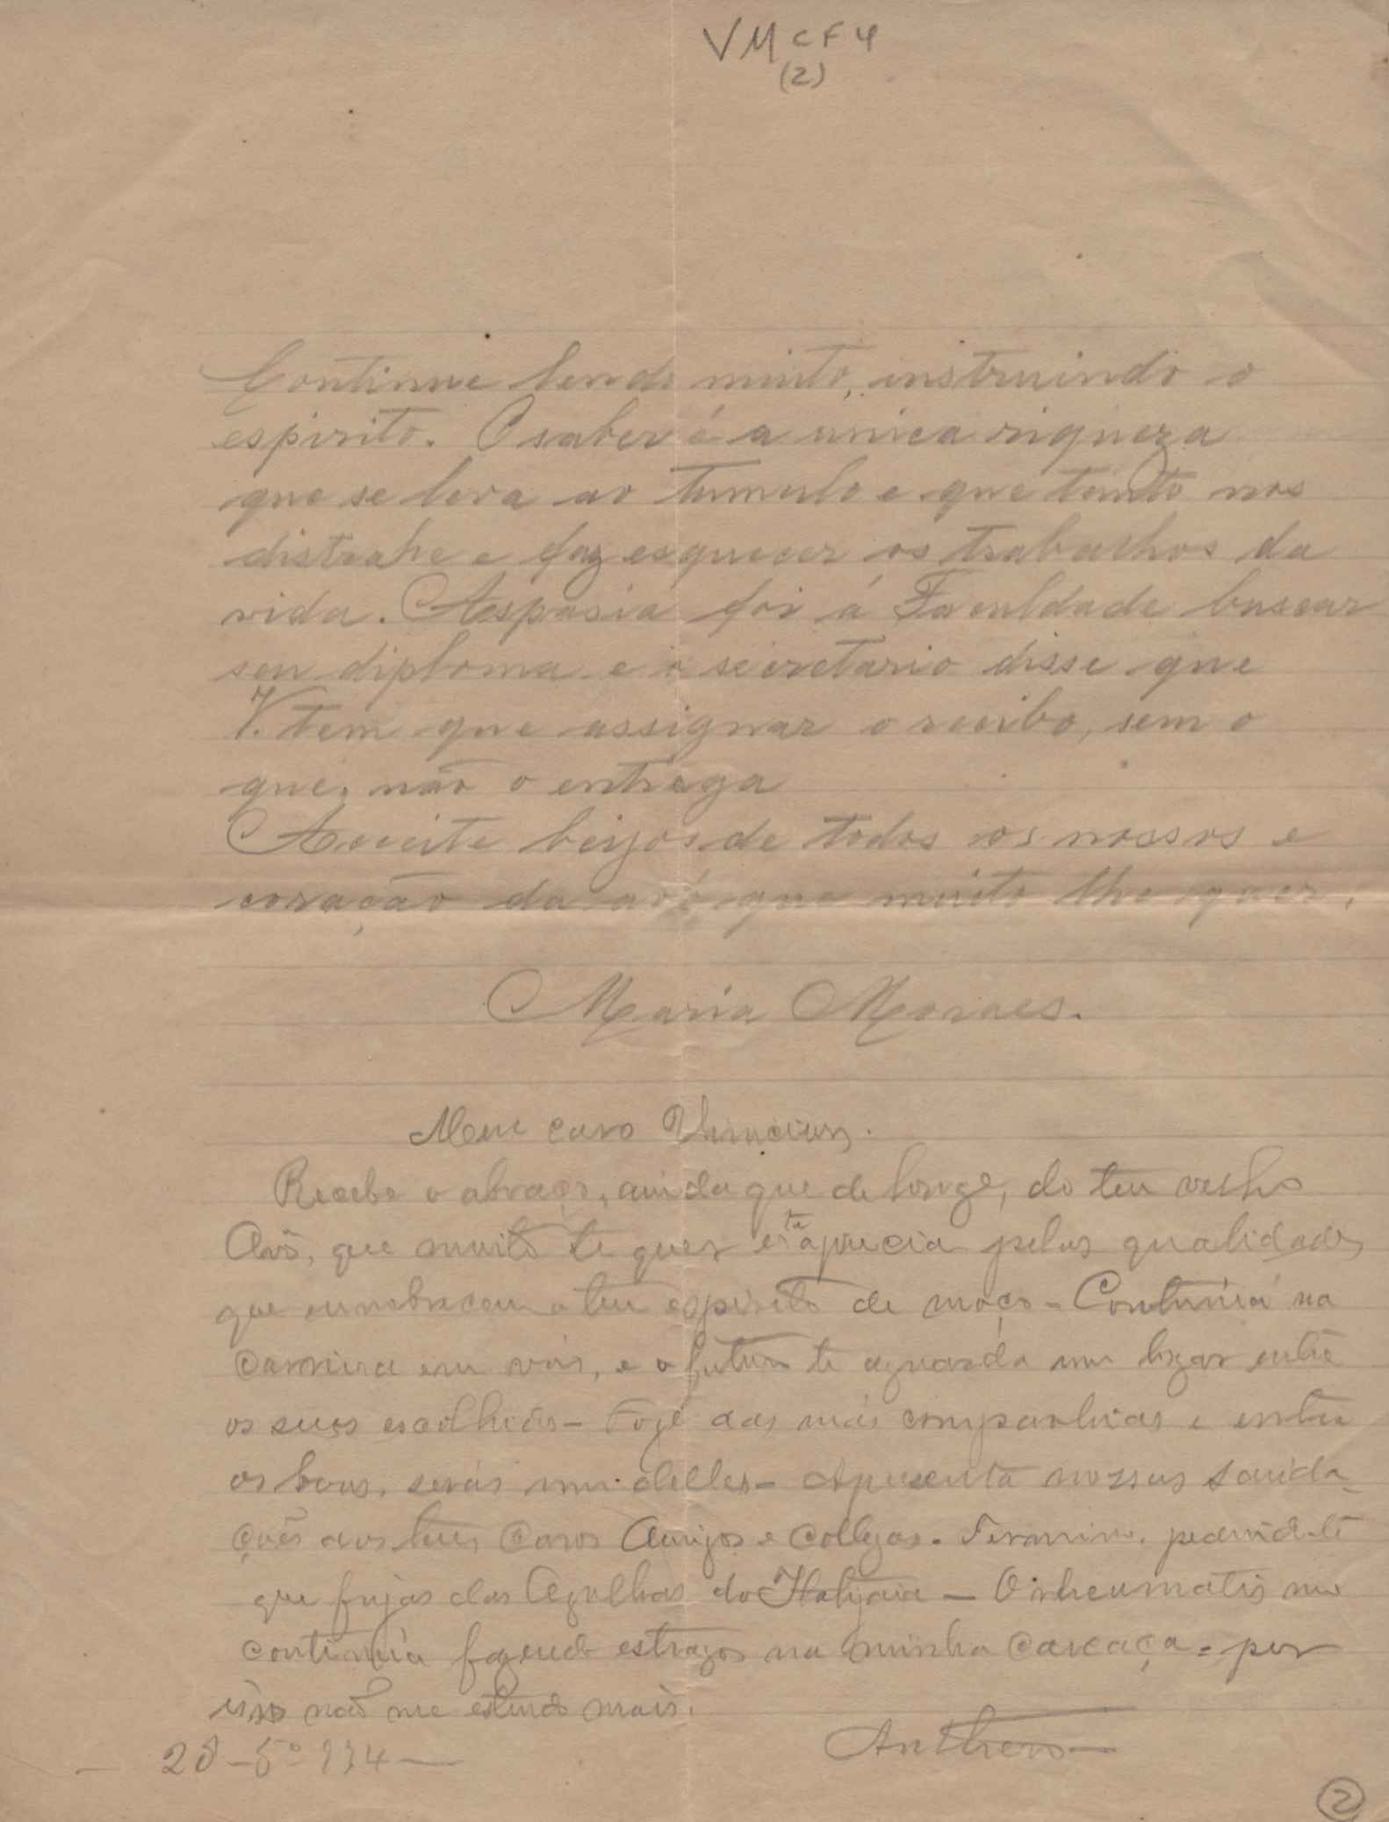 VM CF 4
(2)
Continue lendo muito, instruindo o
espirito. O saber é a unica riqueza
que se leva ao tumulo e que tanto nos
distrahe e faz esquecer os trabalhos da
vida. Aspasia foi á Faculdade buscar
seu diploma e o secretario disse que
V. tem que assignar o recibo, sem o
que, não o entrega
Acceite beijos de todos os nossos e
coração da avó que muito lhe quer.
Maria Moraes.
Meu caro Vinicius.
Recebe o abraço, ainda que de longe, do teu velho
Avô, que muito te quer e te apprecia pelas qualidades
que ennobrecem o teu espirito de moço - Continúa na
carreira em que o futuro te aguarda um logar entre
os seus escolhidos - Foge das más companhias e entre
os bons, serás um delles - Apresenta nossas sauda-
ções aos teus caros Amigos e Collegas. Termino, pedindo-te
que fujas das Agulhas do Itatiaia - O rheumatismo
continúa fazendo estragos na minha carcaça - por
isso não me estendo mais.
Anthero
28 - 5º 934 -
2